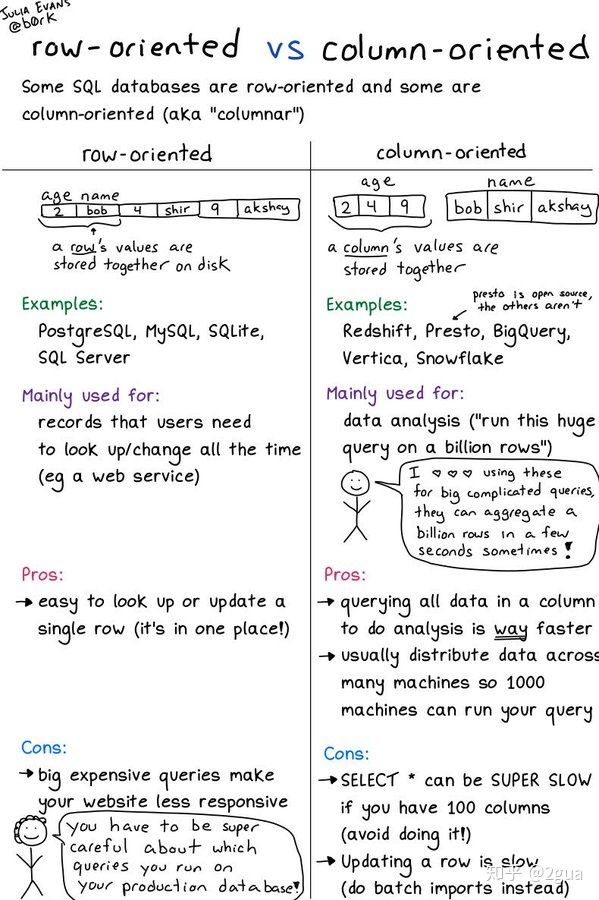 JULIA EVANS
@b0rk
row-oriented vs column-oriented
Some SQL databases are row-oriented and some are
column-oriented (aka "columnar")
row-oriented
age name
2 bob 4 shir 9 akshay
a row's values are
stored together on disk
Examples:
PostgreSQL, MySQL, SQLite,
SQL Server
Mainly used for:
records that users need
to look up/change all the time
(eg a web service)
Pros:
→ easy to look up or update a
single row (it's in one place!)
Cons:
→ big expensive queries make
your website less responsive
you have to be super
careful about which
queries you run on
your production database!
column-oriented
age name
2 4 9 bob shir akshay
a column's values are
stored together
presto is open source,
the others aren't
Examples:
Redshift, Presto, BigQuery,
Vertica, Snowflake
Mainly used for:
data analysis ("run this huge
query on a billion rows")
I ♡ ♡ ♡ using these
for big complicated queries,
they can aggregate a
billion rows in a few
seconds sometimes!
Pros:
→ querying all data in a column
to do analysis is way faster
→ usually distribute data across
many machines so 1000
machines can run your query
Cons:
→ SELECT * can be SUPER SLOW
if you have 100 columns
(avoid doing it!)
→ Updating a row is slow
(do batch imports instead)
知乎 @2gua